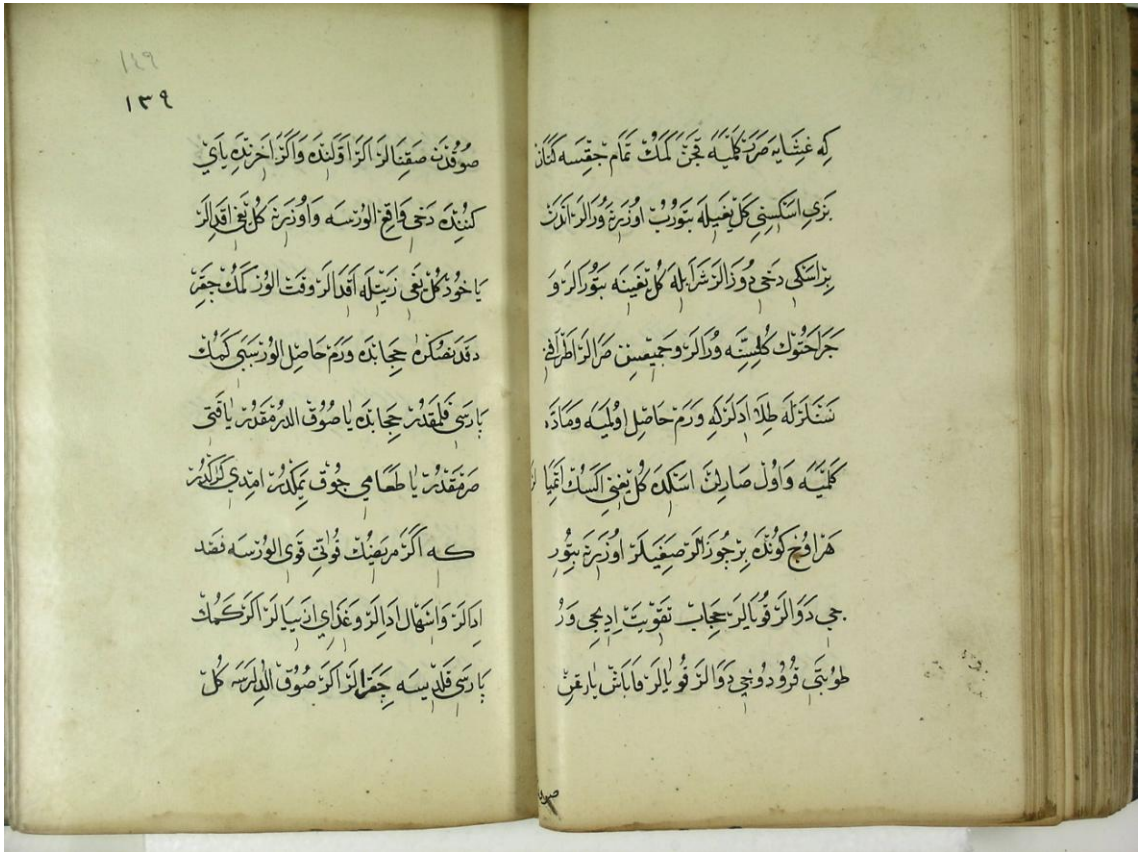 كه غشایه ضرر كلمیه قچن كمك تمام چقسه كتان
بزی اسكسنی كل یغیله بتورب اوزرینه ورالر اندن
بز اسكی دخی دوزالر شرابله كل یغینه بتورالر و
جراحتوك كلسنه ورالر وجمیعسن صرالر اطرافی
نسنلرله طلا ادلر كه ورم حاصل اولمیه وماده
كلمیه واول صارلن اسكده كل یغی اكسك اتمیالر
هر اوچ كونده بر چوزالر صغیلر اوزرینه بتور
جی دوالر قویالر حجاب تقویت ادیجی ور
طوبتی قرودوجی دوالر قویالر وباش یارغن
صو
١٤٩
١٣٩
صوقدن صقنالر اكر اولنده واكر اخرنده یای
كننده دخی واقع الورسه واوزرینه كل یغی اقدالر
یاخود كل یغی زیتله اقدالر وقت الور كمك چقر
دقدنصكره حجابده ورم حاصل الور سببی كمك
پارسی قلمقدر حجابده یا صوق الدرمقدر یا قتی
صرمقدر یا طعامی چوق یمكدر امدی كركدر
كه اكر مریضك قوتی قوی الورسه فصد
ادالر واسهال ادالر وغذای از ییالر اكر كمك
پارسی قلدیسه چقرالر اكر صوق الدلرسه كل